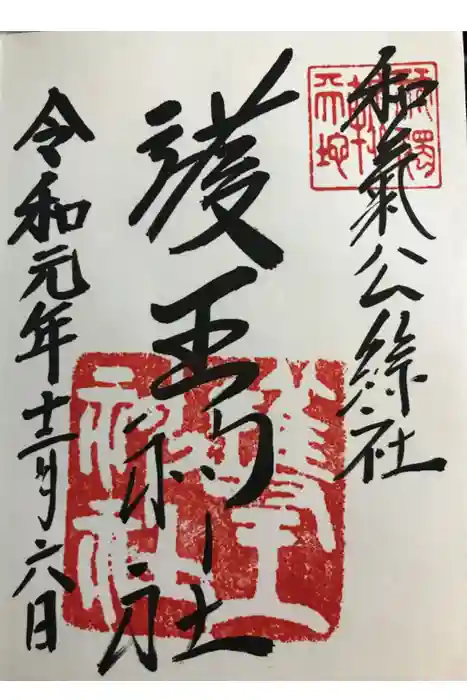 和氣公綜社
護王神社
令和元年十二月六日
護王神社